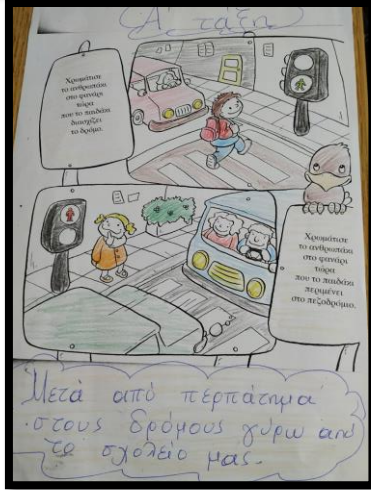 Α' τάξη
Χρωμάτισε
το ανθρωπάκι
στο φανάρι
τώρα
που το παιδάκι
διασχίζει
το δρόμο.
Χρωμάτισε
το ανθρωπάκι
στο φανάρι
τώρα
που το παιδάκι
περιμένει
στο πεζοδρόμιο.
Μετά από περπάτημα
στους δρόμους γύρω από
το σχολείο μας.